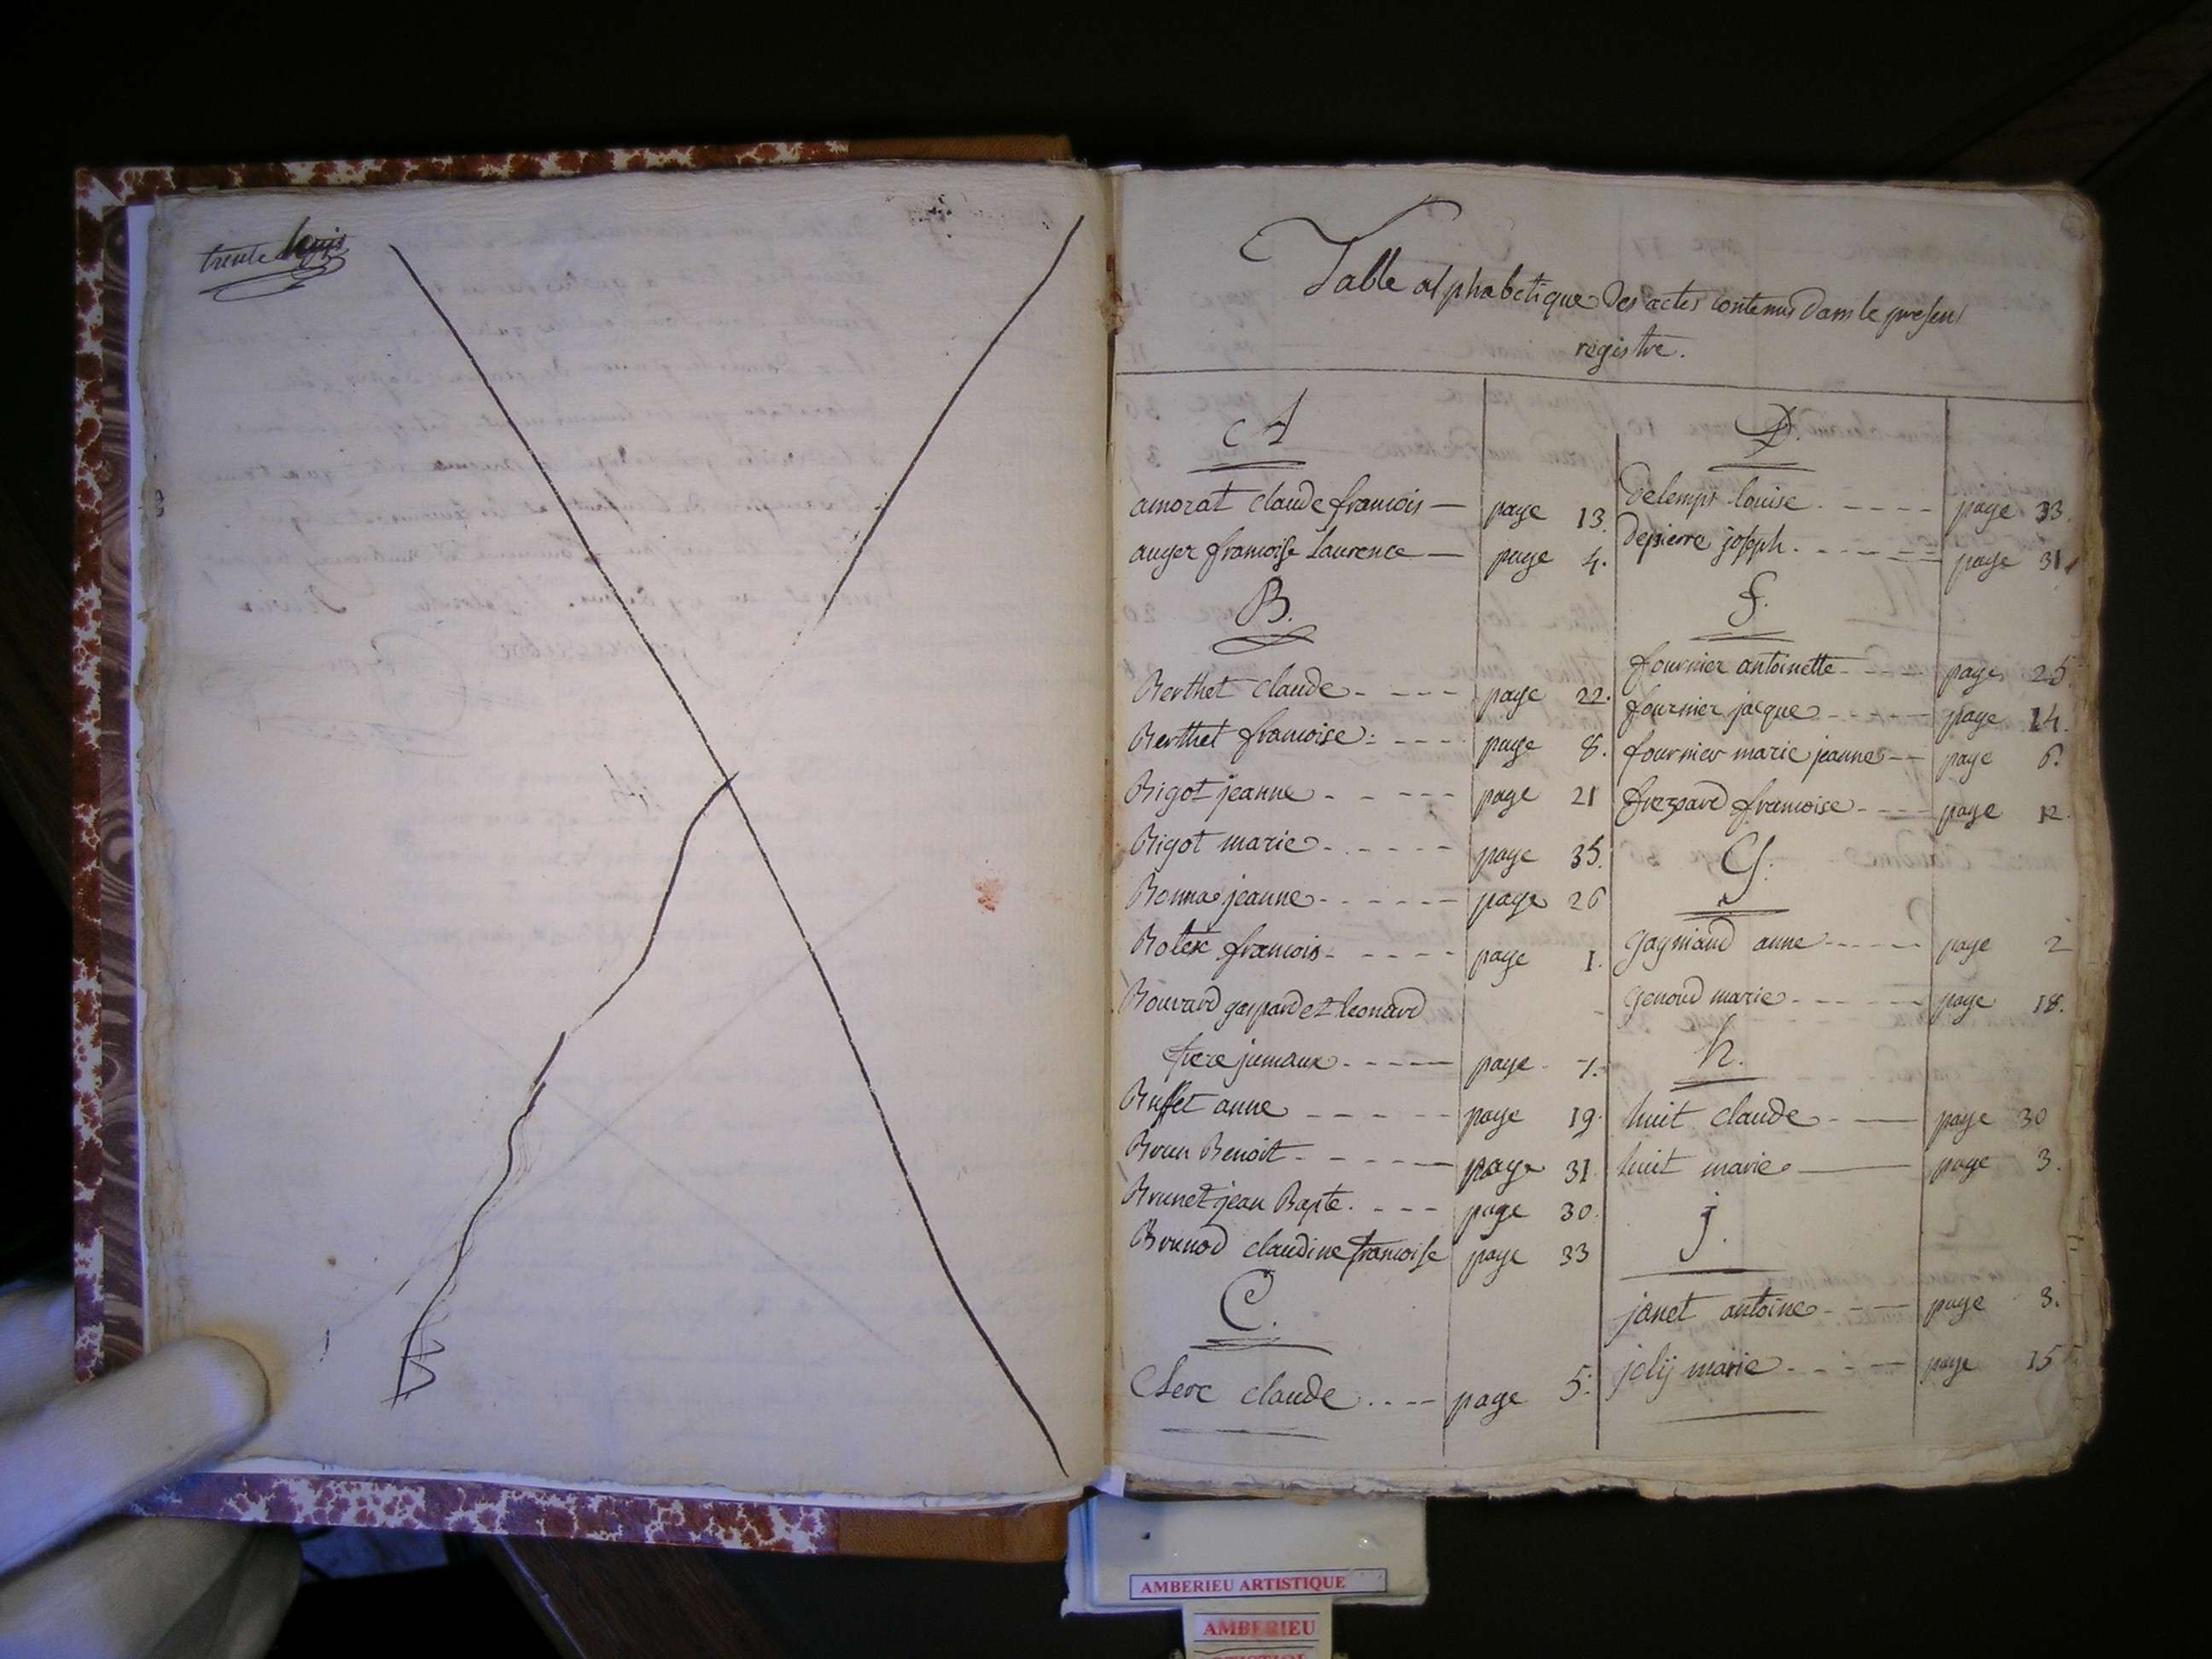 trente
Table alphabetique des actes contenus dans le present
registre.
A
amorat claude francois — page 13.
auger francoise Laurence — page 4.
B.
Berthet claude - - - - page 22.
Berthet francoise: - - - - page 8.
Bigot jeanne - - - - - page 21
Bigot marie - - - - - - page 35.
Bonna jeanne - - - - - - page 26
Botex francois - - - - - page 1.
Bouvard gaspard et leonard
frere jumaux - - - - — page 7.
Buffet anne - - - - - page 19.
Brun Benoit - - - - - — page 31
Brunet jean Bapte. - - - page 30.
Brunod claudine francoise page 33
C.
Clerc claude .... - - page 5.
D.
delemps louise. - - - - page 33.
depierre joseph. - - - - - page 31
f.
fournier antoinette - - - - page 25
fournier jacque - - - - - page 14.
fournier marie jeanne - - page 6.
frezzard francoise - - - - page 12.
G.
gagniand anne - - - - - page 2
genoud marie - - - - - - page 18.
h.
huit claude - — page 30
huit marie — page 3.
j.
janet antoine - - - — page 3.
jolij marie - - - - — page 15
AMBERIEU ARTISTIQUE
AMBERIEU
ARTISTIQUE